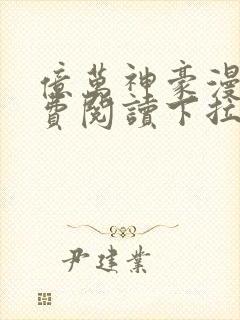 億萬神豪漫
費閱讀下拉
尹建業